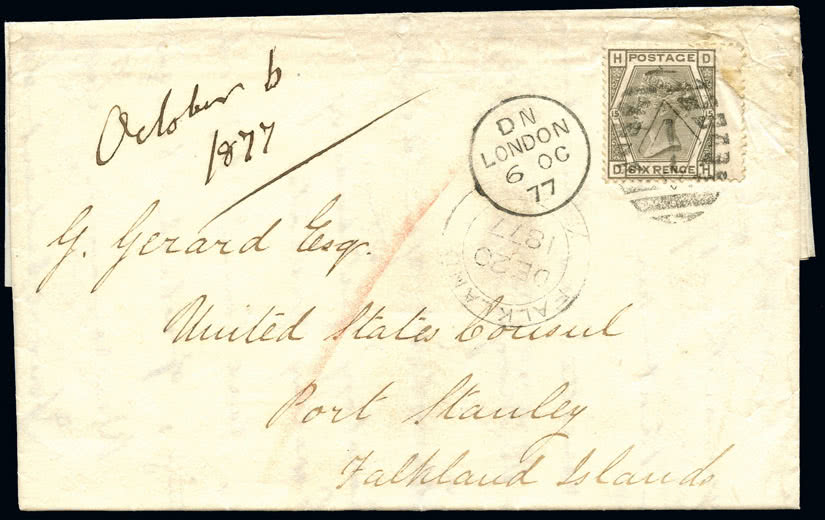 October 6
1877
G. Gerard Esq.
United States Consul
Port Stanley
Falkland Islands
DN
LONDON
6 OC
77
FALKLAND
DE 20
1877
H POSTAGE D
15 15
D SIX PENCE H